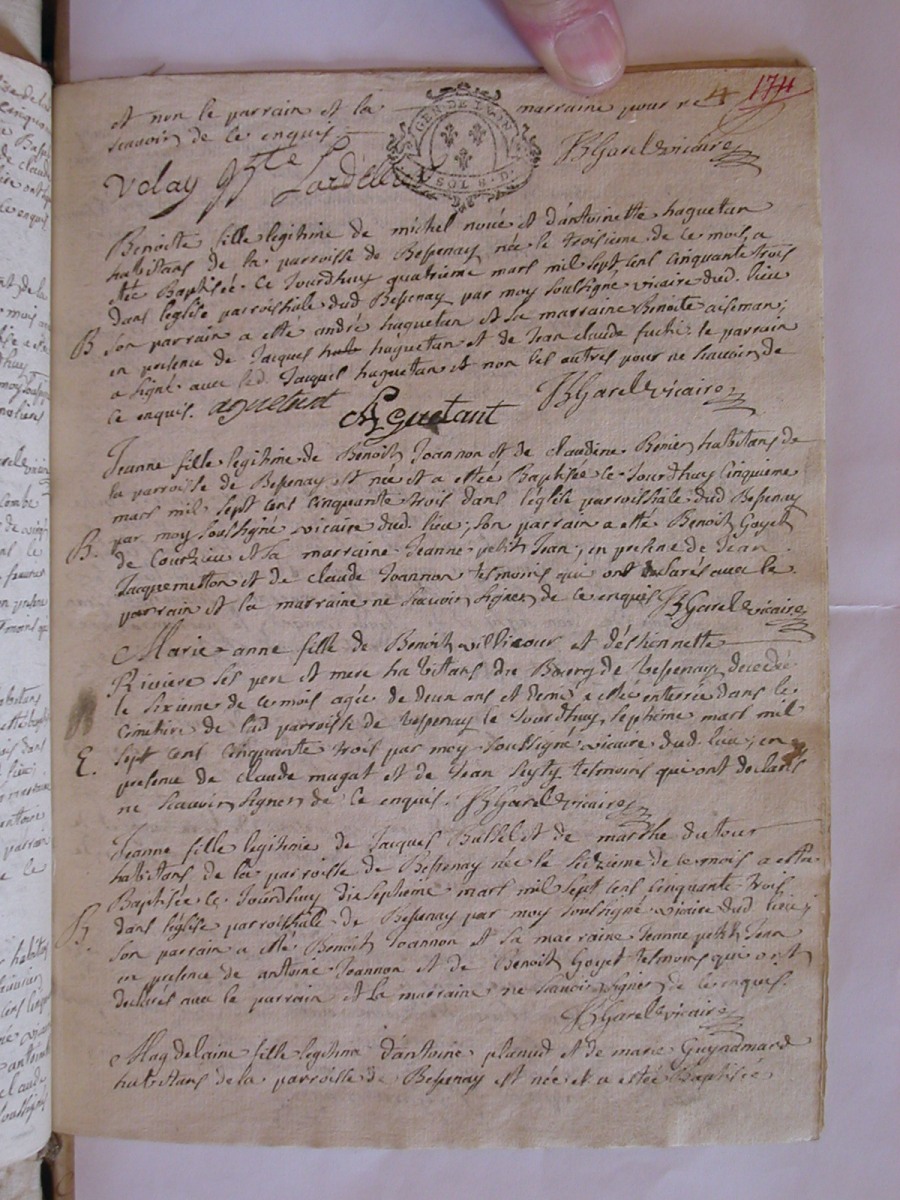 et non le parrain et la marraine pour ne 4 174
scavoir de ce enquis
GEN DE LYON
SOLS. D.
BGarel vicaire
Velay
Benoiste fille legitime de michel noué et d'antoinette haguetan
habitans de la parroisse de Bessenay née le troisieme de ce mois, a
etté Baptisée ce Jourdhuy quatrieme mars mil sept cens cinquante trois
dans leglise parroissiale dud Bessenay par moy soussigne vicaire dud. lieu
B son parrain a etté andré haguetan et sa marraine Benoite aiseman;
en presence de Jacques haguetan et de Jean claude fuchi. le parrain
a signé avec led. Jacques haguetan et non les autres pour ne scavoir de
ce enquis. aguetant Aguetant BGarel vicaire
Jeanne fille legitime de Benoist Joannon et de claudine Benier habitans de
la parroisse de Bessenay est née et a ettée Baptisée ce Jourdhuy cinquieme
mars mil sept cens cinquante trois dans leglise parroissiale dud Bessenay
par moy soussigné vicaire dud. lieu; son parrain a etté Benoist Goyet
B. de Courzieu et sa marraine Jeanne petit Jean; en presence de Jean
Jacquemetton et de claude Joannon tesmoins qui ont declarés avec le
parrain et la marraine ne scavoir signer de ce enquis BGarel vicaire
Marie-anne fille de Benoist villicour et d'estiennette
Riviere ses pere et mere habitans du Bourg de Bessenay decedée
le sixieme de ce mois agée de deux ans et demi a etté enterrée dans le
cimetiere de lad parroisse de Bessenay le Jourdhuy septieme mars mil
E. sept cens cinquante trois par moy soussigné vicaire dud. lieu; en
presence de claude mugat et de Jean tesmoins qui ont declarés
ne scavoir signer de ce enquis. BGarel vicaire
Jeanne fille legitime de Jacques Bussel et de marthe dutour
habitans de la parroisse de Bessenay née le seizieme de ce mois a etté
Baptisée ce Jourdhuy dix septieme mars mil sept cens cinquante trois
B. dans leglise parroissiale de Bessenay par moy soussigné vicaire dud lieu;
son parrain a etté Benoist Joannon et sa marraine Jeanne petit Jean
en presence de antoine Joannon et de Benoist Goyet tesmoins qui ont
declarés avec le parrain et la marraine ne scavoir signer de ce enquis.
BGarel vicaire
Magdelaine fille legitime d'antoine planud et de marie Guynamard
habitans de la parroisse de Bessenay est née et a ettée Baptisée